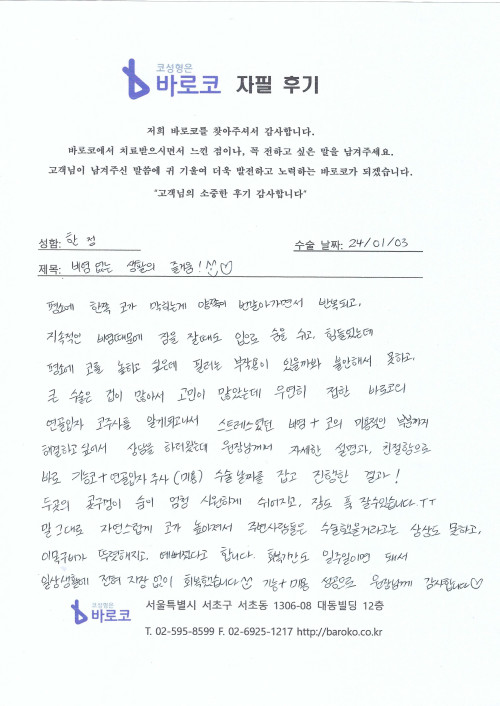 코성형은
바로코 자필 후기
저희 바로코를 찾아주셔서 감사합니다.
바로코에서 치료받으시면서 느낀 점이나, 꼭 전하고 싶은 말을 남겨주세요.
고객님이 남겨주신 말씀에 귀 기울여 더욱 발전하고 노력하는 바로코가 되겠습니다.
"고객님의 소중한 후기 감사합니다"
성함: 한 정 수술 날짜: 24/01/03
제목: 비염 없는 생활의 즐거움!
평소에 한쪽 코가 막히는게 양쪽이 번갈아가면서 반복되고,
지속적인 비염때문에 잠을 잘때도 입으로 숨을 쉬고, 힘들었는데
평소에 코를 높히고 싶은데 필러는 부작용이 있을까봐 불안해서 못하고,
큰 수술은 겁이 많아서 고민이 많았는데 우연히 접한 바로코의
연골입자 코주사를 알게되고나서 스트레스였던 비염 + 코의 미용적인 부분까지
해결하고 싶어서 상담을 하러왔는데 원장님께서 자세한 설명과, 친절함으로
바로 기능코+연골입자 주사 (미용) 수술 날짜를 잡고 진행한 결과!
두곳의 콧구멍이 숨이 엄청 시원하게 쉬어지고, 잠도 푹 잘수있습니다.ㅜㅜ
말그대로 자연스럽게 코가 높아져서 주변사람들은 수술했을거라고는 상상도 못하고,
이목구비가 뚜렷해지고, 예뻐졌다고 합니다. 회복기간도 일주일이면 돼서
일상생활에 전혀 지장 없이 회복했습니다 기능+미용 성공으로 원장님께 감사합니다♡
코성형은
바로코 서울특별시 서초구 서초동 1306-08 대동빌딩 12층
T. 02-595-8599 F. 02-6925-1217 http://baroko.co.kr